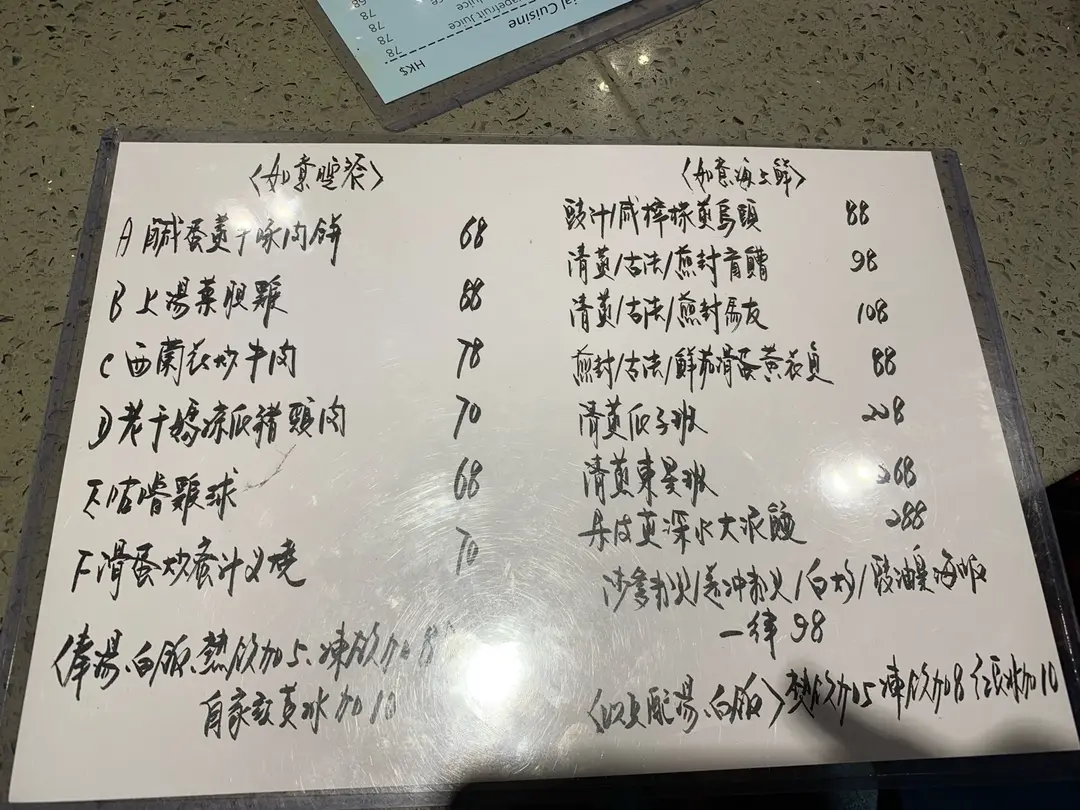 ial Cuisine
apefruit Juice
ce
68
78
78
78
78
HK$
〈如意晚餐〉
A 鹹蛋蒸手啄肉餅 68
B 上湯菜胆雞 88
C 西蘭花炒牛肉 78
D 老干媽凉瓜豬頸肉 70
E 咕嚕雞球 68
F 滑蛋炒蜜汁叉燒 70
俸湯、白飯、熱飲加5、凍飲加8
自家紅荳冰加10
〈如意海上鮮〉
豉汁/咸檸檬蒸烏頭 88
清蒸/古法/煎封盲鰽 98
清蒸/古法/煎封馬友 108
煎封/古法/鮮茄滑蛋黃衣魚 88
清蒸瓜子班 228
清蒸東星班 268
蒸深水大泥鯭 288
沙爹粉/白灼/豉油皇海
一律 98
〈以上配湯、白飯〉熱飲加5 凍飲加8 紅豆冰加10